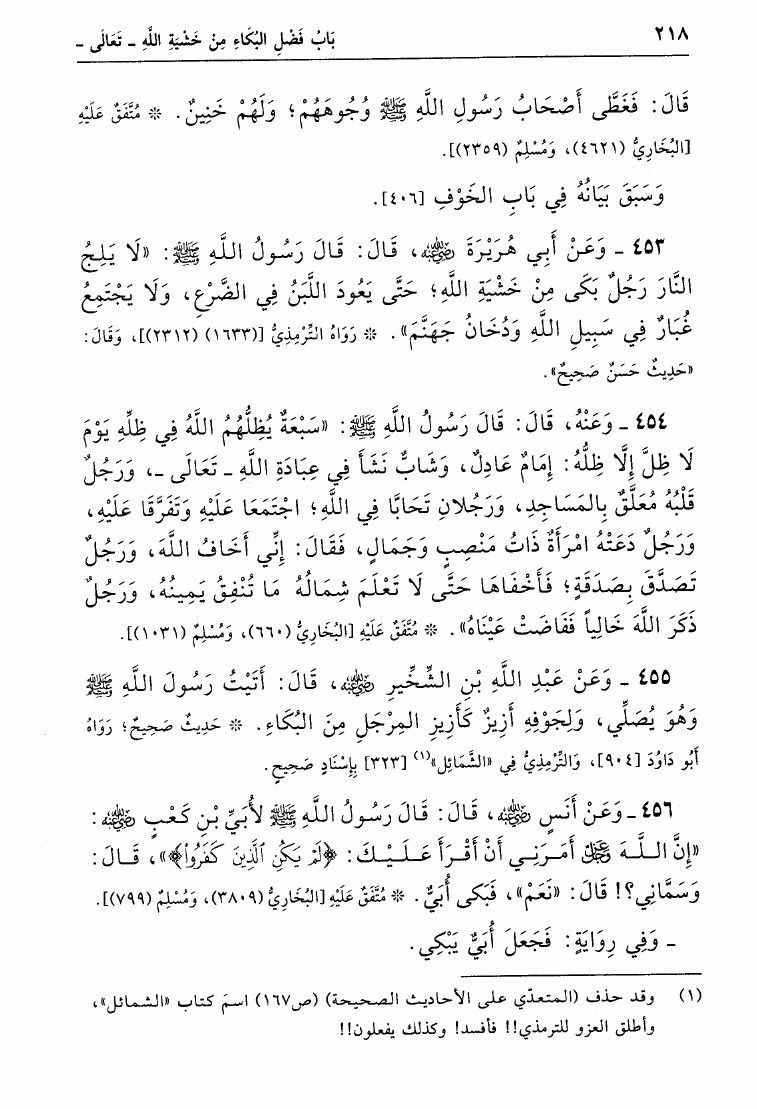 ٢١٨ بَابُ فَضْلِ البُكَاءِ مِنْ خَشْيَةِ اللَّهِ ـ تَعَالَى ـ
قَالَ: فَغَطَّى أَصْحَابُ رَسُولِ اللَّهِ ﷺ وُجُوهَهُمْ؛ وَلَهُمْ خَنِينٌ. * مُتَّفَقٌ عَلَيْهِ
[البُخَارِيُّ (٤٦٢١)، وَمُسْلِمٌ (٢٣٥٩)].
وَسَبَقَ بَيَانُهُ فِي بَابِ الخَوْفِ [٤٠٦].
٤٥٣ ـ وَعَنْ أَبِي هُرَيْرَةَ رضي الله عنه، قَالَ: قَالَ رَسُولُ اللَّهِ ﷺ: «لَا يَلِجُ
النَّارَ رَجُلٌ بَكَى مِنْ خَشْيَةِ اللَّهِ؛ حَتَّى يَعُودَ اللَّبَنُ فِي الضَّرْعِ، وَلَا يَجْتَمِعُ
غُبَارٌ فِي سَبِيلِ اللَّهِ وَدُخَانُ جَهَنَّمَ». * رَوَاهُ التِّرْمِذِيُّ [(١٦٣٣) (٢٣١٢)]، وَقَالَ:
«حَدِيثٌ حَسَنٌ صَحِيحٌ».
٤٥٤ ـ وَعَنْهُ، قَالَ: قَالَ رَسُولُ اللَّهِ ﷺ: «سَبْعَةٌ يُظِلُّهُمُ اللَّهُ فِي ظِلِّهِ يَوْمَ
لَا ظِلَّ إِلَّا ظِلُّهُ: إِمَامٌ عَادِلٌ، وَشَابٌّ نَشَأَ فِي عِبَادَةِ اللَّهِ ـ تَعَالَى ـ، وَرَجُلٌ
قَلْبُهُ مُعَلَّقٌ بِالمَسَاجِدِ، وَرَجُلانِ تَحَابَّا فِي اللَّهِ؛ اجْتَمَعَا عَلَيْهِ وَتَفَرَّقَا عَلَيْهِ،
وَرَجُلٌ دَعَتْهُ امْرَأَةٌ ذَاتُ مَنْصِبٍ وَجَمَالٍ، فَقَالَ: إِنِّي أَخَافُ اللَّهَ، وَرَجُلٌ
تَصَدَّقَ بِصَدَقَةٍ؛ فَأَخْفَاهَا حَتَّى لَا تَعْلَمَ شِمَالُهُ مَا تُنْفِقُ يَمِينُهُ، وَرَجُلٌ
ذَكَرَ اللَّهَ خَالِياً فَفَاضَتْ عَيْنَاهُ». * مُتَّفَقٌ عَلَيْهِ [البُخَارِيُّ (٦٦٠)، وَمُسْلِمٌ (١٠٣١)].
٤٥٥ ـ وَعَنْ عَبْدِ اللَّهِ بْنِ الشِّخِّيرِ رضي الله عنه، قَالَ: أَتَيْتُ رَسُولَ اللَّهِ ﷺ
وَهُوَ يُصَلِّي، وَلِجَوْفِهِ أَزِيزٌ كَأَزِيزِ المِرْجَلِ مِنَ البُكَاءِ. * حَدِيثٌ صَحِيحٌ؛ رَوَاهُ
أَبُو دَاوُدَ [٩٠٤]، وَالتِّرْمِذِيُّ فِي «الشَّمَائِلِ»(١) [٣٢٣] بِإِسْنَادٍ صَحِيحٍ.
٤٥٦ ـ وَعَنْ أَنَسٍ رضي الله عنه، قَالَ: قَالَ رَسُولُ اللَّهِ ﷺ لأُبَيِّ بْنِ كَعْبٍ رضي الله عنه:
«إِنَّ اللَّهَ عز وجل أَمَرَنِي أَنْ أَقْرَأَ عَلَيْكَ: ﴿لَمْ يَكُنِ ٱلَّذِينَ كَفَرُوا﴾»، قَالَ:
وَسَمَّانِي؟! قَالَ: «نَعَمْ»، فَبَكى أُبَيٌّ. * مُتَّفَقٌ عَلَيْهِ [البُخَارِيُّ (٣٨٠٩)، وَمُسْلِمٌ (٧٩٩)].
ـ وَفِي رِوَايَةٍ: فَجَعَلَ أُبَيٌّ يَبْكِي.
(١) وقد حذف (المتعدّي على الأحاديث الصحيحة) (ص١٦٧) اسمَ كتاب «الشمائل»،
وأطلق العزو للترمذي!! فأفسد! وكذلك يفعلون!!